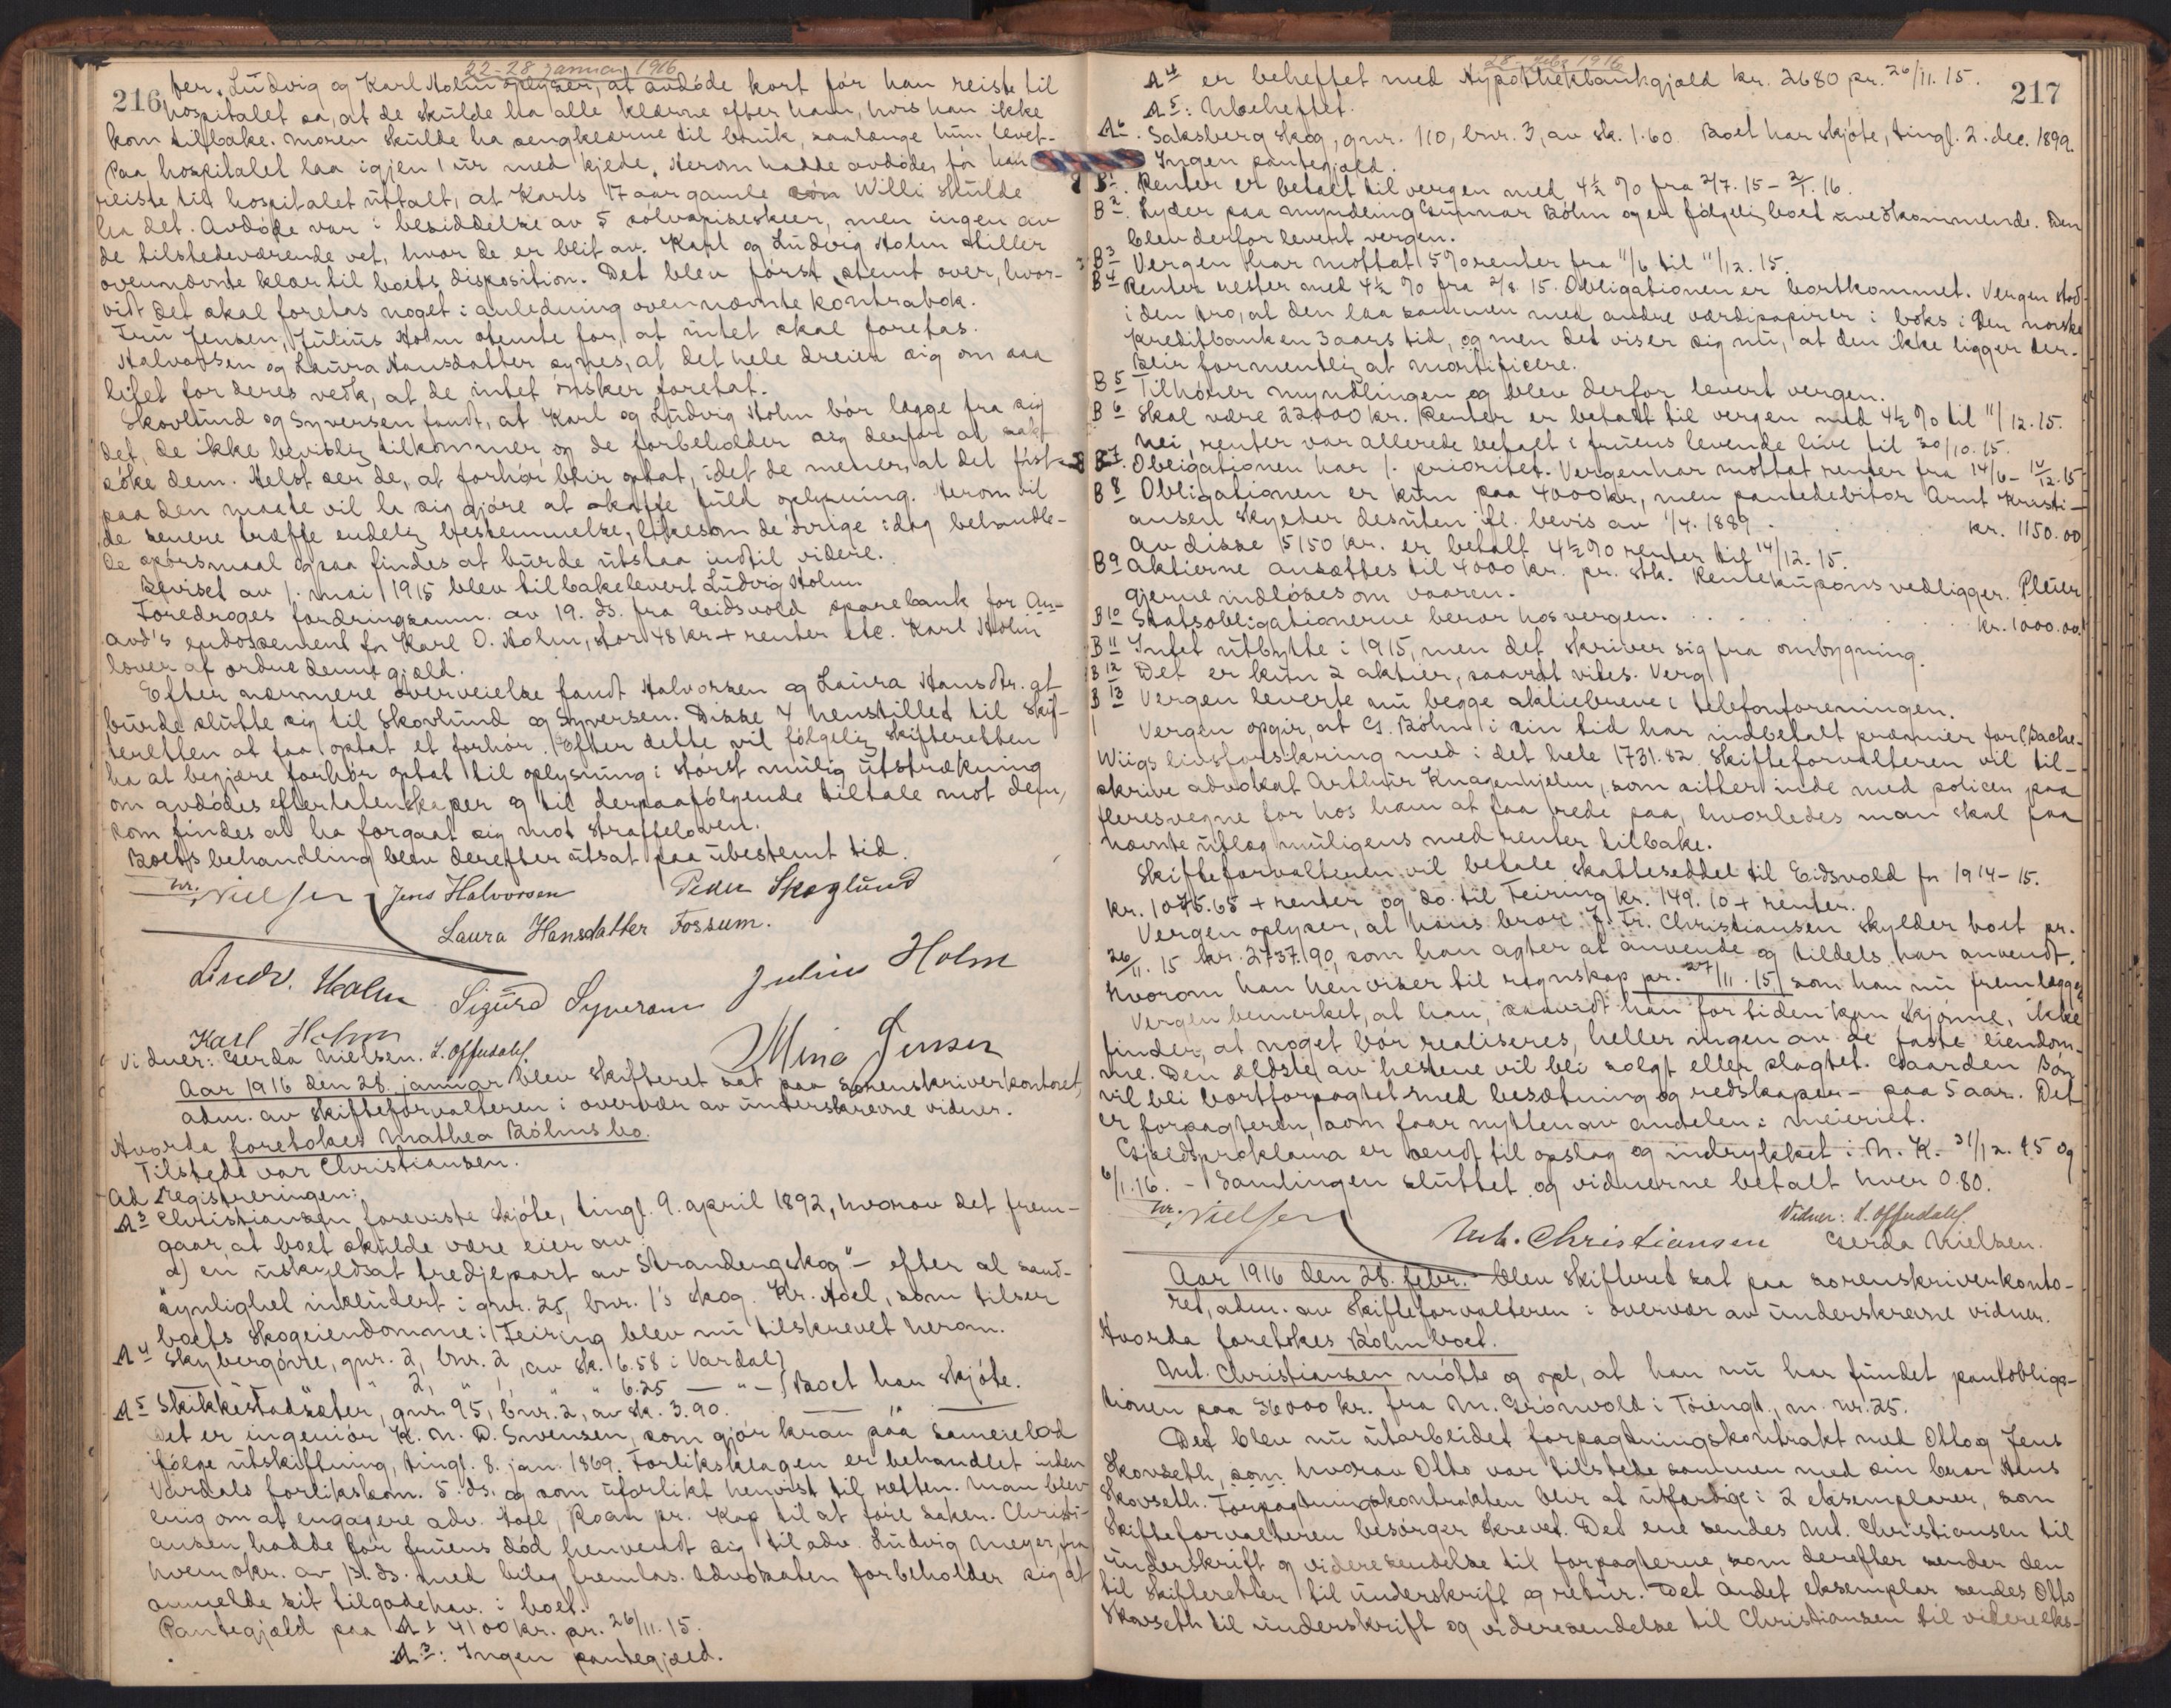 22-28 januar 1916
216
per. Ludvig og Karl Holm at avdöde kort för han reiste til
hospitalet sa, at de skulde ha alle klærne efter ham, hvis han ikke
kom tilbake. Moren skulde ha sengklærne til bruk, saalænge hun levet.
Paa hospitalet laa igjen 1 ur med kjede. Herom hadde avdöde, för han
reiste til hospitalet uttalt, at Karls 17 aar gamle sön Willi skulde
ha det. Avdöde var i besiddelse av 5 sölvspiseskeer, men ingen av
de tilstedeværende vet, hvor de er blit av. Karl og Ludvig Holm stiller
ovennævnte klær til boets disposition. Det blev först stemt over, hvor-
vidt det skal foretas noget i anledning ovennævnte kontrabok.
Fru Jensen, Julius Holm stemte for, at intet skal foretas.
Halvorsen og Laura Hansdatter synes, at det hele dreier sig om saa
litet for deres vedk, at de intet önsker foretat.
Skovlund og Syversen fandt, at Karl og Ludvig Holm bör lægge fra sig
det, de ikke bevislig tilkommer og de forbeholder sig derfor at sak-
söke dem. Helst ser de, at forhör blir optat, idet de mener, at det först
paa den maate vil la sig gjöre at skaffe fuld oplysning. Herom vil
de senere træffe endelig bestemmelse, likesom de övrige idag behandle-
de spörsmaal ogsaa findes at burde utstaa indtil videre.
Beviset av 1. mai 1915 blev tilbakelevert Ludvig Holm
Foredroges fordringsanm. av 19. ds. fra Eidsvold sparebank for An-
avd's endossement for Karl O. Holm, stor 48 kr + renter etc. Karl Holm
lover at ordne denne gjæld.
Efter nærmere överveielse fandt Halvorsen og Laura Hansdtr. at
burde slutte sig til Skovlund og Syversen. Disse 4 henstillet til skif-
teretten at faa optat et forhör. Efter dette vil fölgelig skifteretten
ha at begjære forhör optat til oplysning i störst mulig utstrækning
om avdödes efterlatenskaper og til derpaafölgende tiltale mot dem,
som findes at ha forgaat sig mot straffeloven.
Boets behandling blev derefter utsat paa ubestemt tid.
Nielsen Jens Halvorsen Peder Skoglund
Laura Hansdatter Fossum.
Ludv. Holm Sigurd Syversen Julius Holm
Karl Holm Mina Jensen
Vidner: Gerda Nielsen. L. Offerdahl
Aar 1916 den 28. januar blev skifteret sat paa sorenskriverkontoret,
adm. av skifteforvalteren i overvær av underskrevne vidner.
Hvorda foretokes Mathea Böhms bo.
Tilstede var Christiansen.
Ad registreringen:
A3 Christiansen foreviste skjöte, tingl. 9. april 1892, hvorav det frem-
gaar, at boet skulde være eier av:
a) en uskyldsat tredjepart av "Strandengskog" – efter al sand-
synlighet inkludert i gnr. 25, bnr. 1's skog. Hr. Hoel, som tilser
boets skogeiendomme i Feiring blev nu tilskrevet herom.
A4 Skybergövre, gnr. 2, bnr. 2, av sk. 6.58 i Vardal
" 2, " 1, " " 6.25 — " — Boet har skjöte.
A5 Skikkestadsæter, gnr. 95, bnr. 2, av sk. 3.90.
Det er ingeniör K. N. D. Svensen, som gjör krav paa sameielod
ifölge utskiftning, tingl. 8. jan. 1869. Forliksklagen er behandlet inden
Vardals forlikskom. 5. ds. og som uforlikt henvist til retten. Man blev
enig om at engagere adv. Hoel, Roan pr. Kap til at före saken. Christi-
ansen hadde för fruens död henvendt sig til adv. Ludvig Meyer, fra
hvem skr. av 13. ds. med bilag fremlas. Advokaten forbeholder sig at
anmelde sit tilgodehav. i boet.
Pantegjæld paa A1 4100 kr. pr. 26/11. 15.
A3: Ingen pantegjæld.
28. febr. 1916
217
A4 er beheftet med Hypothekbankgjæld kr. 2680 pr. 26/11. 15.
A5: Ubeheftet.
A6. Saksberg Skog, gnr. 110, bnr. 3, av sk. 1.60. Boet har skjöte, tingl. 2. dec. 1899.
Ingen pantegjæld.
B1. Renter er betalt til vergen med 4½ % fra 2/7. 15 – 2/1. 16.
B2. Lyder paa myndling Gunnar Böhm og er fölgelig boet uvedkommende. Den
blev derfor levert vergen.
B3 Vergen har mottat 5 % renter fra 11/6 til 11/12. 15.
B4 Renter rester med 4½ % fra 2/8. 15. Obligationen er bortkommet. Vergen stod
i den tro, at den laa sammen med andre værdipapirer i boks i Den norske
kreditbanken 3 aars tid, og men det viser sig nu, at den ikke ligger der.
Blir formentlig at mortificere.
B5 Tilhörer myndlingen og blev derfor levert vergen.
B6 Skal være 22000 kr. Renter er betalt til vergen med 4½ % til 11/12. 15.
nei, renter var allerede betalt i fruens levende live til 30/10. 15.
B7. Obligationen har 1. prioritet. Vergen har mottat renter fra 14/6 – 14/12. 15
B8 Obligationen er kun paa 4000 kr, men pantedebitor Arnt Kristi-
ansen skylder desuten ifl. bevis av 1/4. 1889 . . . kr. 1150.00
av disse 5150 kr. er betalt 4½ % renter til 14/12. 15.
B9 Aktierne ansættes til 4000 kr. pr. stk. Rentekupons vedligger. Pleier
gjerne indlöses om vaaren.
B10 Statsobligationerne beror hos vergen. . . . . . . kr. 1000.00.
B11 Intet utbytte i 1915, men det skriver sig fra ombygning.
B12 Det er kun 2 aktier, saavidt vites. Verg
B13 Vergen leverte nu begge aktiebreve i telefonforeningen.
Vergen opgir, at G. Böhm i sin tid har indbetalt præmier for (Bache-
Wiigs livsforsikring med i det hele 1731.82. Skifteforvalteren vil til-
skrive advokat Arthur Knagenhjelm, som sitter inde med policen paa
fleresvegne for hos ham at faa rede paa, hvorledes man skal faa
nævnte utlæg muligens med renter tilbake.
Skifteforvalteren vil betale skatteseddel til Eidsvold for 1914–15.
kr. 1075.65 + renter og do. til Feiring kr. 149.10 + renter.
Vergen oplyser, at hans bror J. Fr. Christiansen skylder boet pr.
26/11. 15 kr. 2737.90, som han agter at anvende og tildels har anvendt.
Hvorom han henviser til regnskap pr. 27/11. 15, som han nu fremlægger
Vergen bemerket, at han, saavidt han for tiden kan skjönne, ikke
finder, at noget bör realiseres, heller ingen av de faste eiendom-
me. Den ældste av hestene vil bli solgt eller slagtet. Gaarden Bön
vil bli bortforpagtet med besætning og redskaper – paa 5 aar. Det
er forpagteren, som faar nytten av andelen i meieriet.
Gjældsproklama er sendt til opslag og indrykket i N. K. 31/12. 15 og
6/1. 16. – Samlingen sluttet og vidnerne betalt hver 0.80.
Nielsen Ant. Christiansen Vidner: L. Offerdahl
Gerda Nielsen.
Aar 1916 den 28. febr. blev skifteret sat paa sorenskriverkonto-
ret, adm. av skifteforvalteren i overvær av underskrevne vidner.
Hvorda foretokes Böhmboet.
Ant. Christiansen mötte og opl, at han nu har fundet pantobliga-
tionen paa 36000 kr. fra M. Grönvold i Töiengt., m. nr. 25.
Det blev nu utarbeidet forpagtningskontrakt med Otto og Jens
Skovseth, som hvorav Otto var tilstede sammen med sin bror Hans
Skovseth. Forpagtningskontrakten blir at utfærdige i 2 eksemplarer, som
skifteforvalteren besörger skrevet. Det ene sendes Ant. Christiansen til
underskrift og videresendelse til forpagterne, som derefter sender den
til skifteretten til underskrift og retur. Det andet eksemplar sendes Otto
Skovseth til underskrift og videresendelse til Christiansen til videreeks-